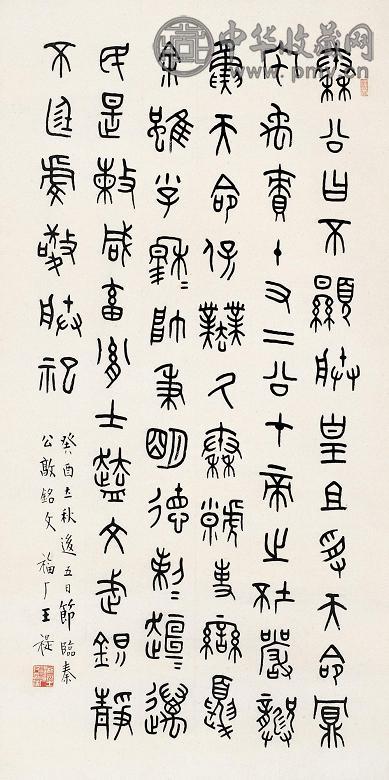 中华收藏网
秦公曰不顯朕皇且受天命鼏
宅禹賣十又二公才帝之坯嚴龏
夤天命保業氒秦虩事蠻夏
余雖小子穆=帥秉明德剌=趄=邁
民是敕咸畜胤士盍=文武鎮靜
不廷虔敬朕祀
癸酉立秋後五日節臨秦
公敦銘文 福厂王禔